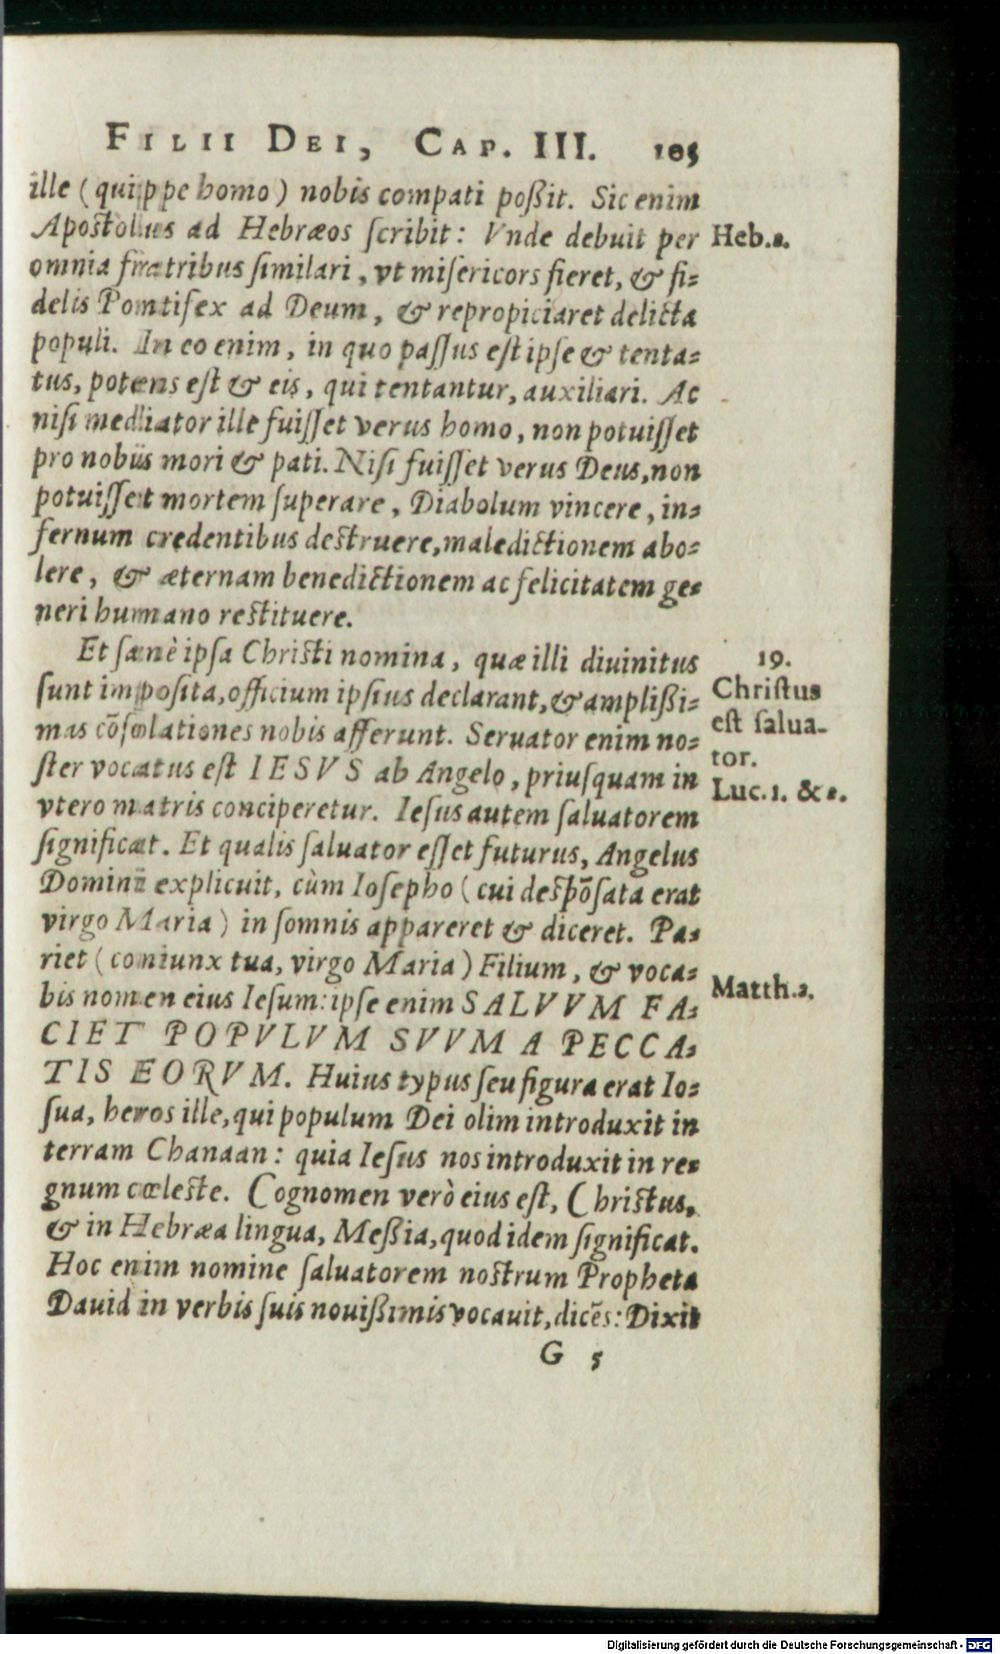 FILII DEI, CAP. III. 105
ille (quippe homo) nobis compati poßit. Sic enim
Apostolus ad Hebræos ſcribit: Vnde debuit per
Heb.2.
omnia fratribus ſimilari, vt miſericors fieret, & fi-
delis Pontifex ad Deum, & repropiciaret delicta
populi. In eo enim, in quo paſſus eſt ipſe & tenta-
tus, potens eſt & eis, qui tentantur, auxiliari. Ac
niſi mediator ille fuiſſet verus homo, non potuiſſet
pro nobis mori & pati. Niſi fuiſſet verus Deus, non
potuiſſet mortem ſuperare, Diabolum vincere, in-
fernum credentibus deſtruere, maledictionem abo-
lere, & æternam benedictionem ac felicitatem ge-
neri humano reſtituere.
Et ſanè ipſa Chriſti nomina, quæ illi diuinitus
19.
ſunt impoſita, officium ipſius declarant, & amplißi-
Chriſtus
mas cōſolationes nobis afferunt. Seruator enim no-
eſt ſalua-
ſter vocatus eſt IESVS ab Angelo, priuſquam in
tor.
Luc.1. & 2.
vtero matris conciperetur. Ieſus autem ſaluatorem
ſignificat. Et qualis ſaluator eſſet futurus, Angelus
Domini explicuit, cùm Ioſepho (cui deſpōſata erat
virgo Maria) in ſomnis appareret & diceret. Pa-
riet (coniunx tua, virgo Maria) Filium, & voca-
bis nomen eius Ieſum: ipſe enim SALVVM FA-
Matth.2.
CIET POPVLVM SVVM A PECCA-
TIS EORVM. Huius typus ſeu figura erat Io-
ſua, heros ille, qui populum Dei olim introduxit in
terram Chanaan: quia Ieſus nos introduxit in re-
gnum cœleſte. Cognomen verò eius eſt, Chriſtus,
& in Hebræa lingua, Meßia, quod idem ſignificat.
Hoc enim nomine ſaluatorem noſtrum Propheta
Dauid in verbis ſuis nouißimis vocauit, dicēs: Dixit
G 5
Digitalisierung gefördert durch die Deutsche Forschungsgemeinschaft - DFG